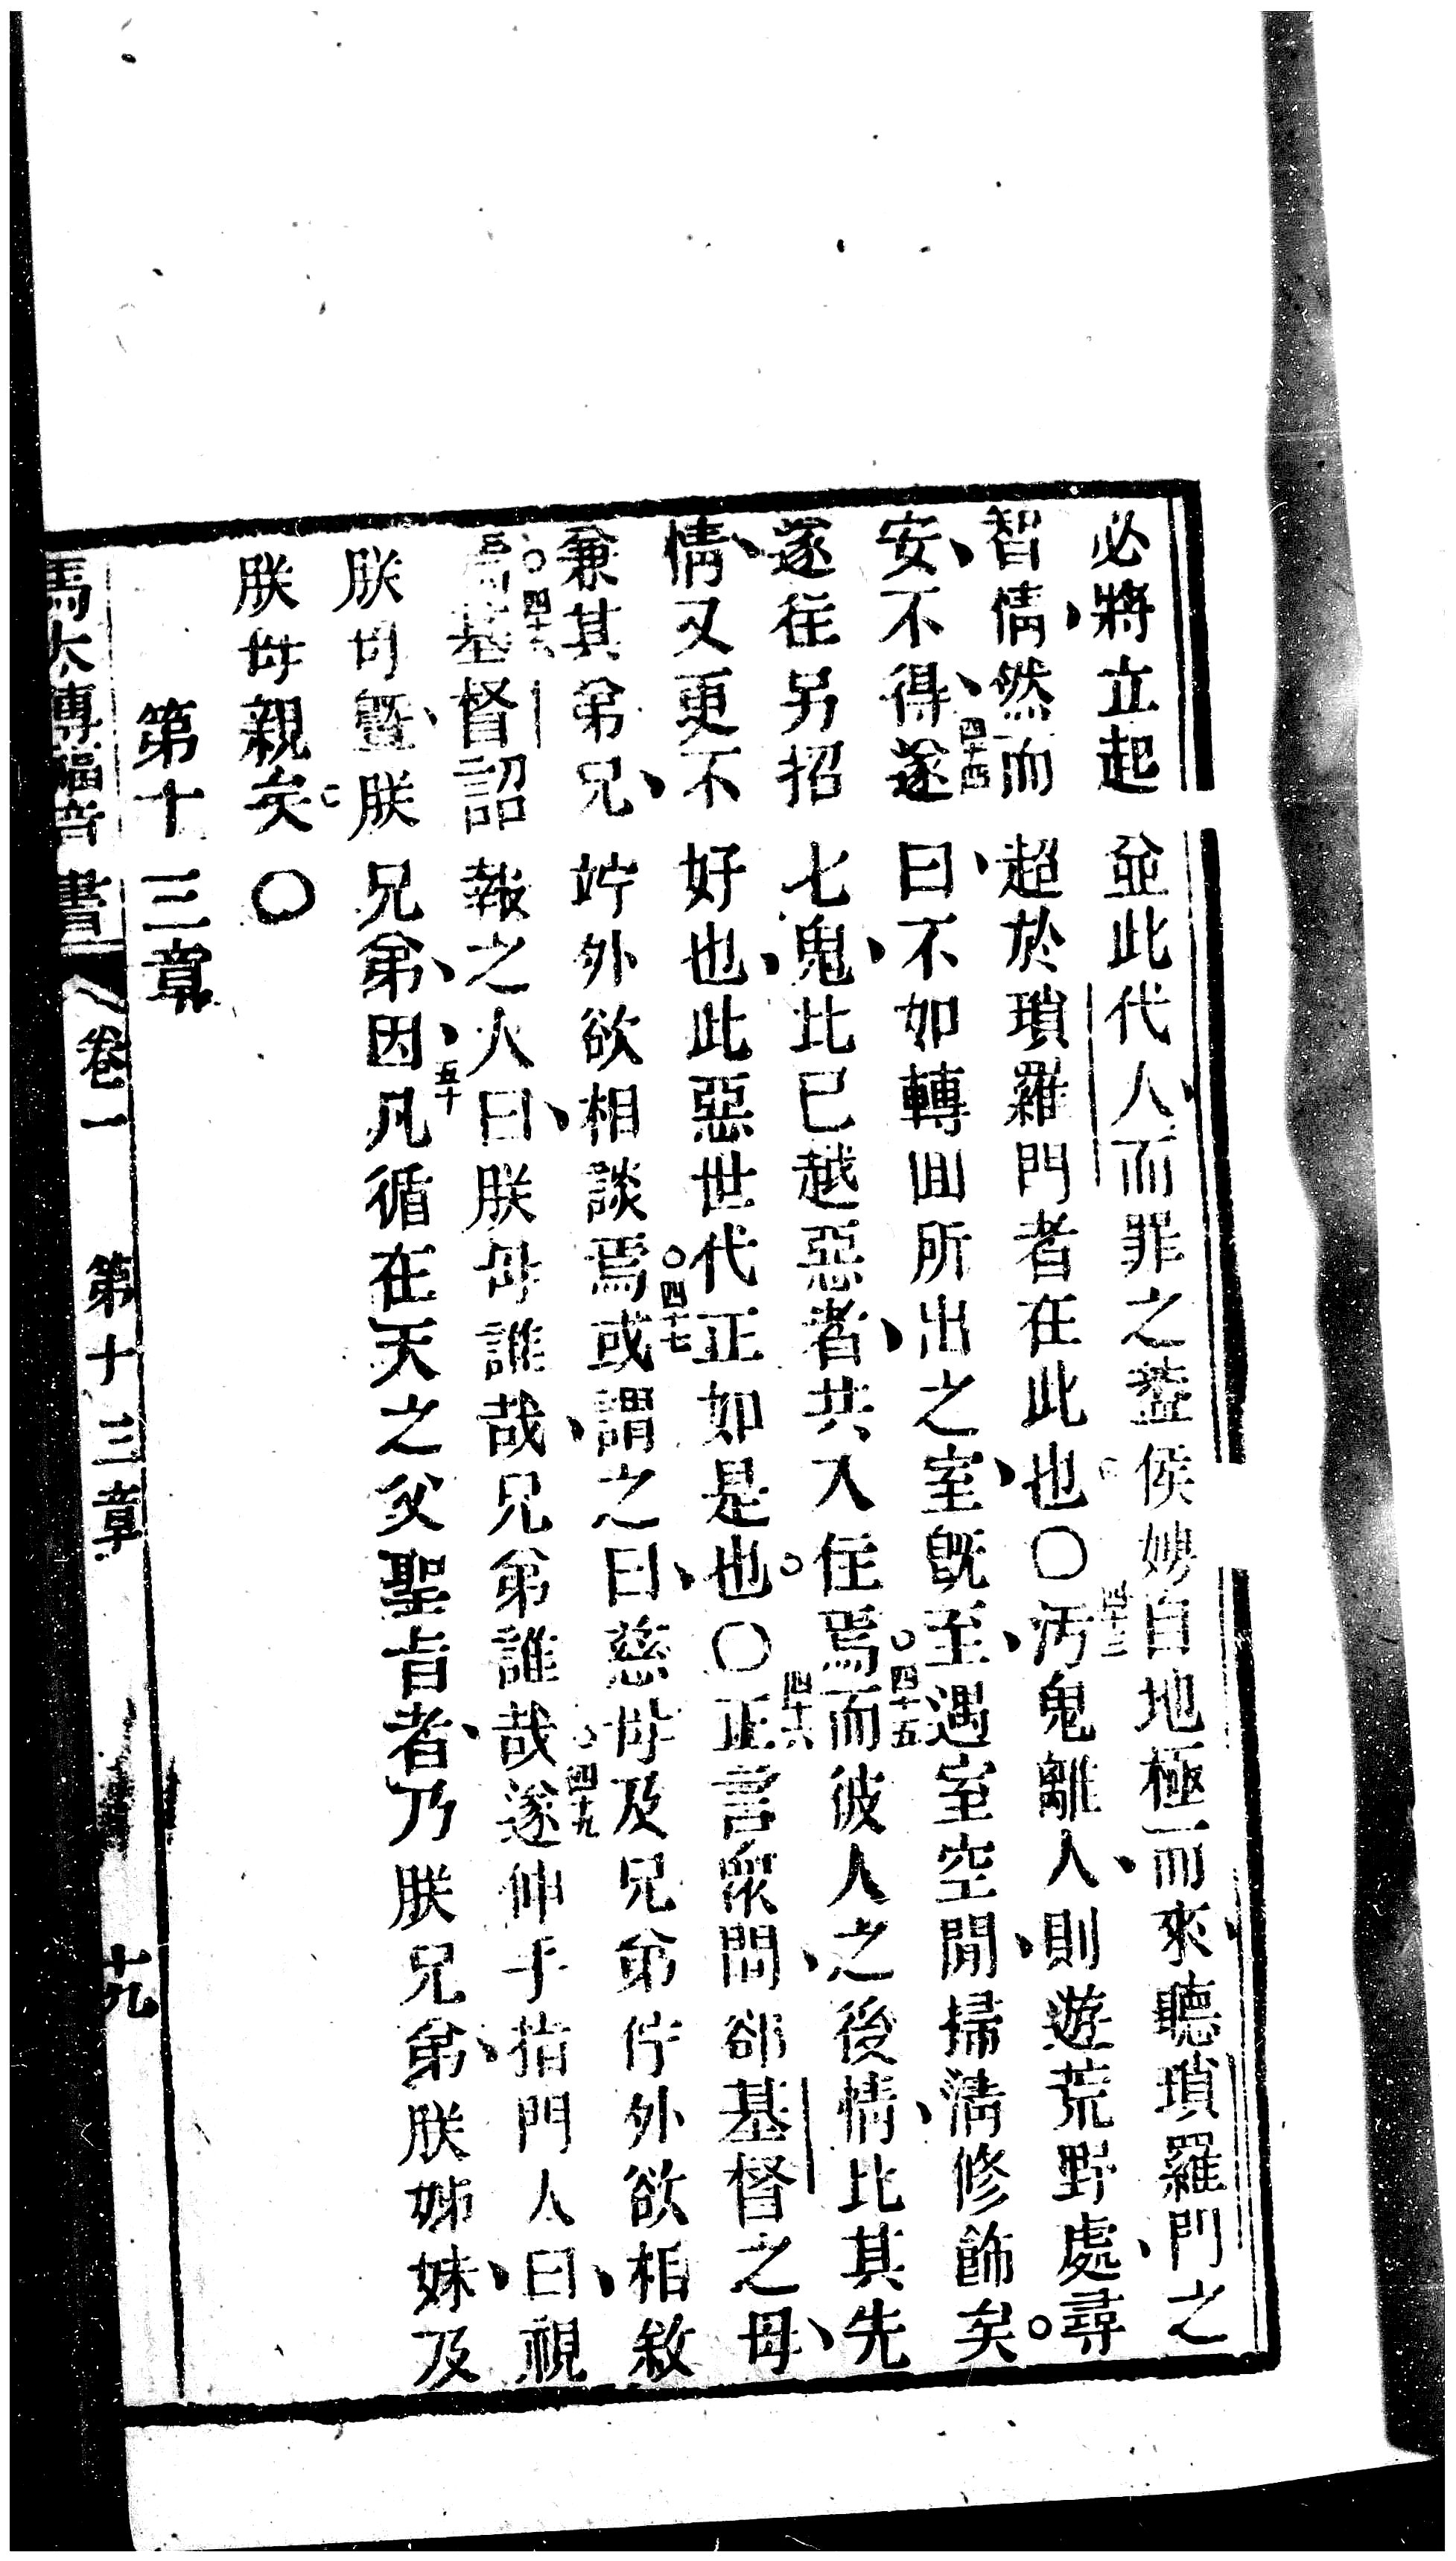 必將立起並此代人而罪之蓋侯嫂自地極而來聽瑣羅門之
智情然而超於瑣羅門者在此也〇四十三污鬼離人則遊荒野處尋
安不得遂四十四曰不如轉囬所出之室旣至遇室空閒掃淸修飾矣
遂往另招七鬼比已越惡者共入住焉四十五而彼人之後情比其先
情又更不好也此惡世代正如是也〇四十六正言衆間卻基督之母
兼其弟兄竚外欲相談焉四十七或謂之曰慈母及兄弟佇外欲相敘
焉四十八基督詔報之人曰朕母誰哉兄弟誰哉四十九遂伸手指門人曰視
朕母曁朕兄弟五十因凡循在天之父聖旨者乃朕兄弟朕姊妹及
朕母親矣〇
第十三章
馬太傳福音書 卷一 第十三章 十九